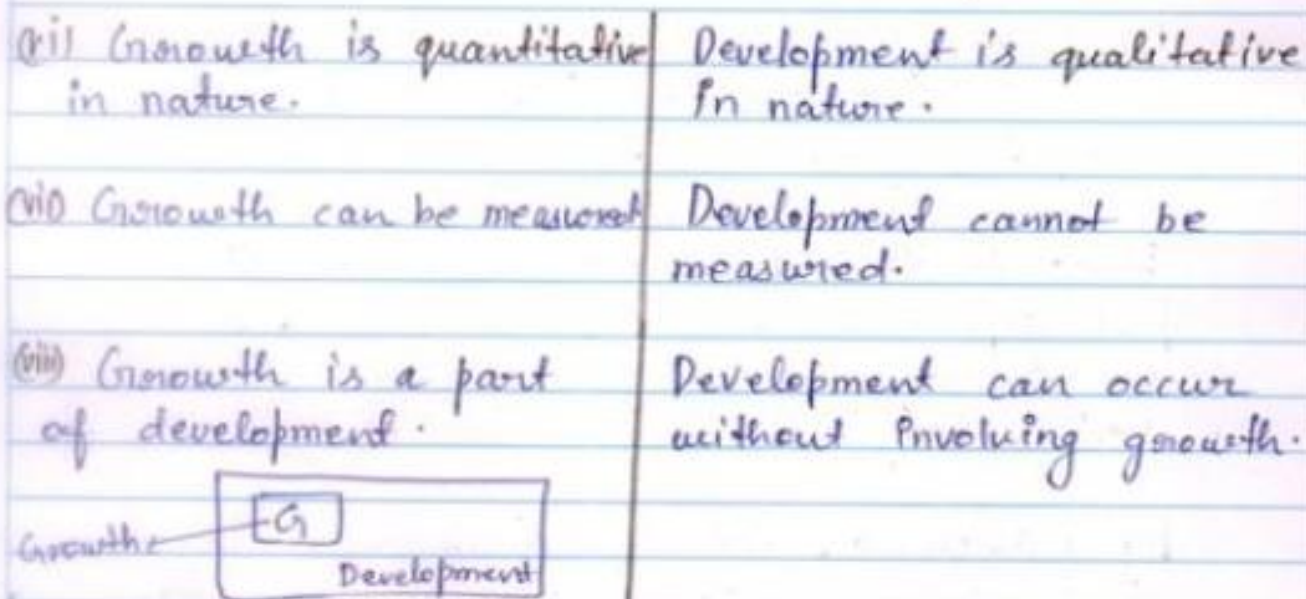 (vi) Growth is quantitative
in nature.
Development is qualitative
in nature.
(vii) Growth can be measured
Development cannot be
measured.
(viii) Growth is a part
of development.
Development can occur
without involving growth.
Growth
G
Development